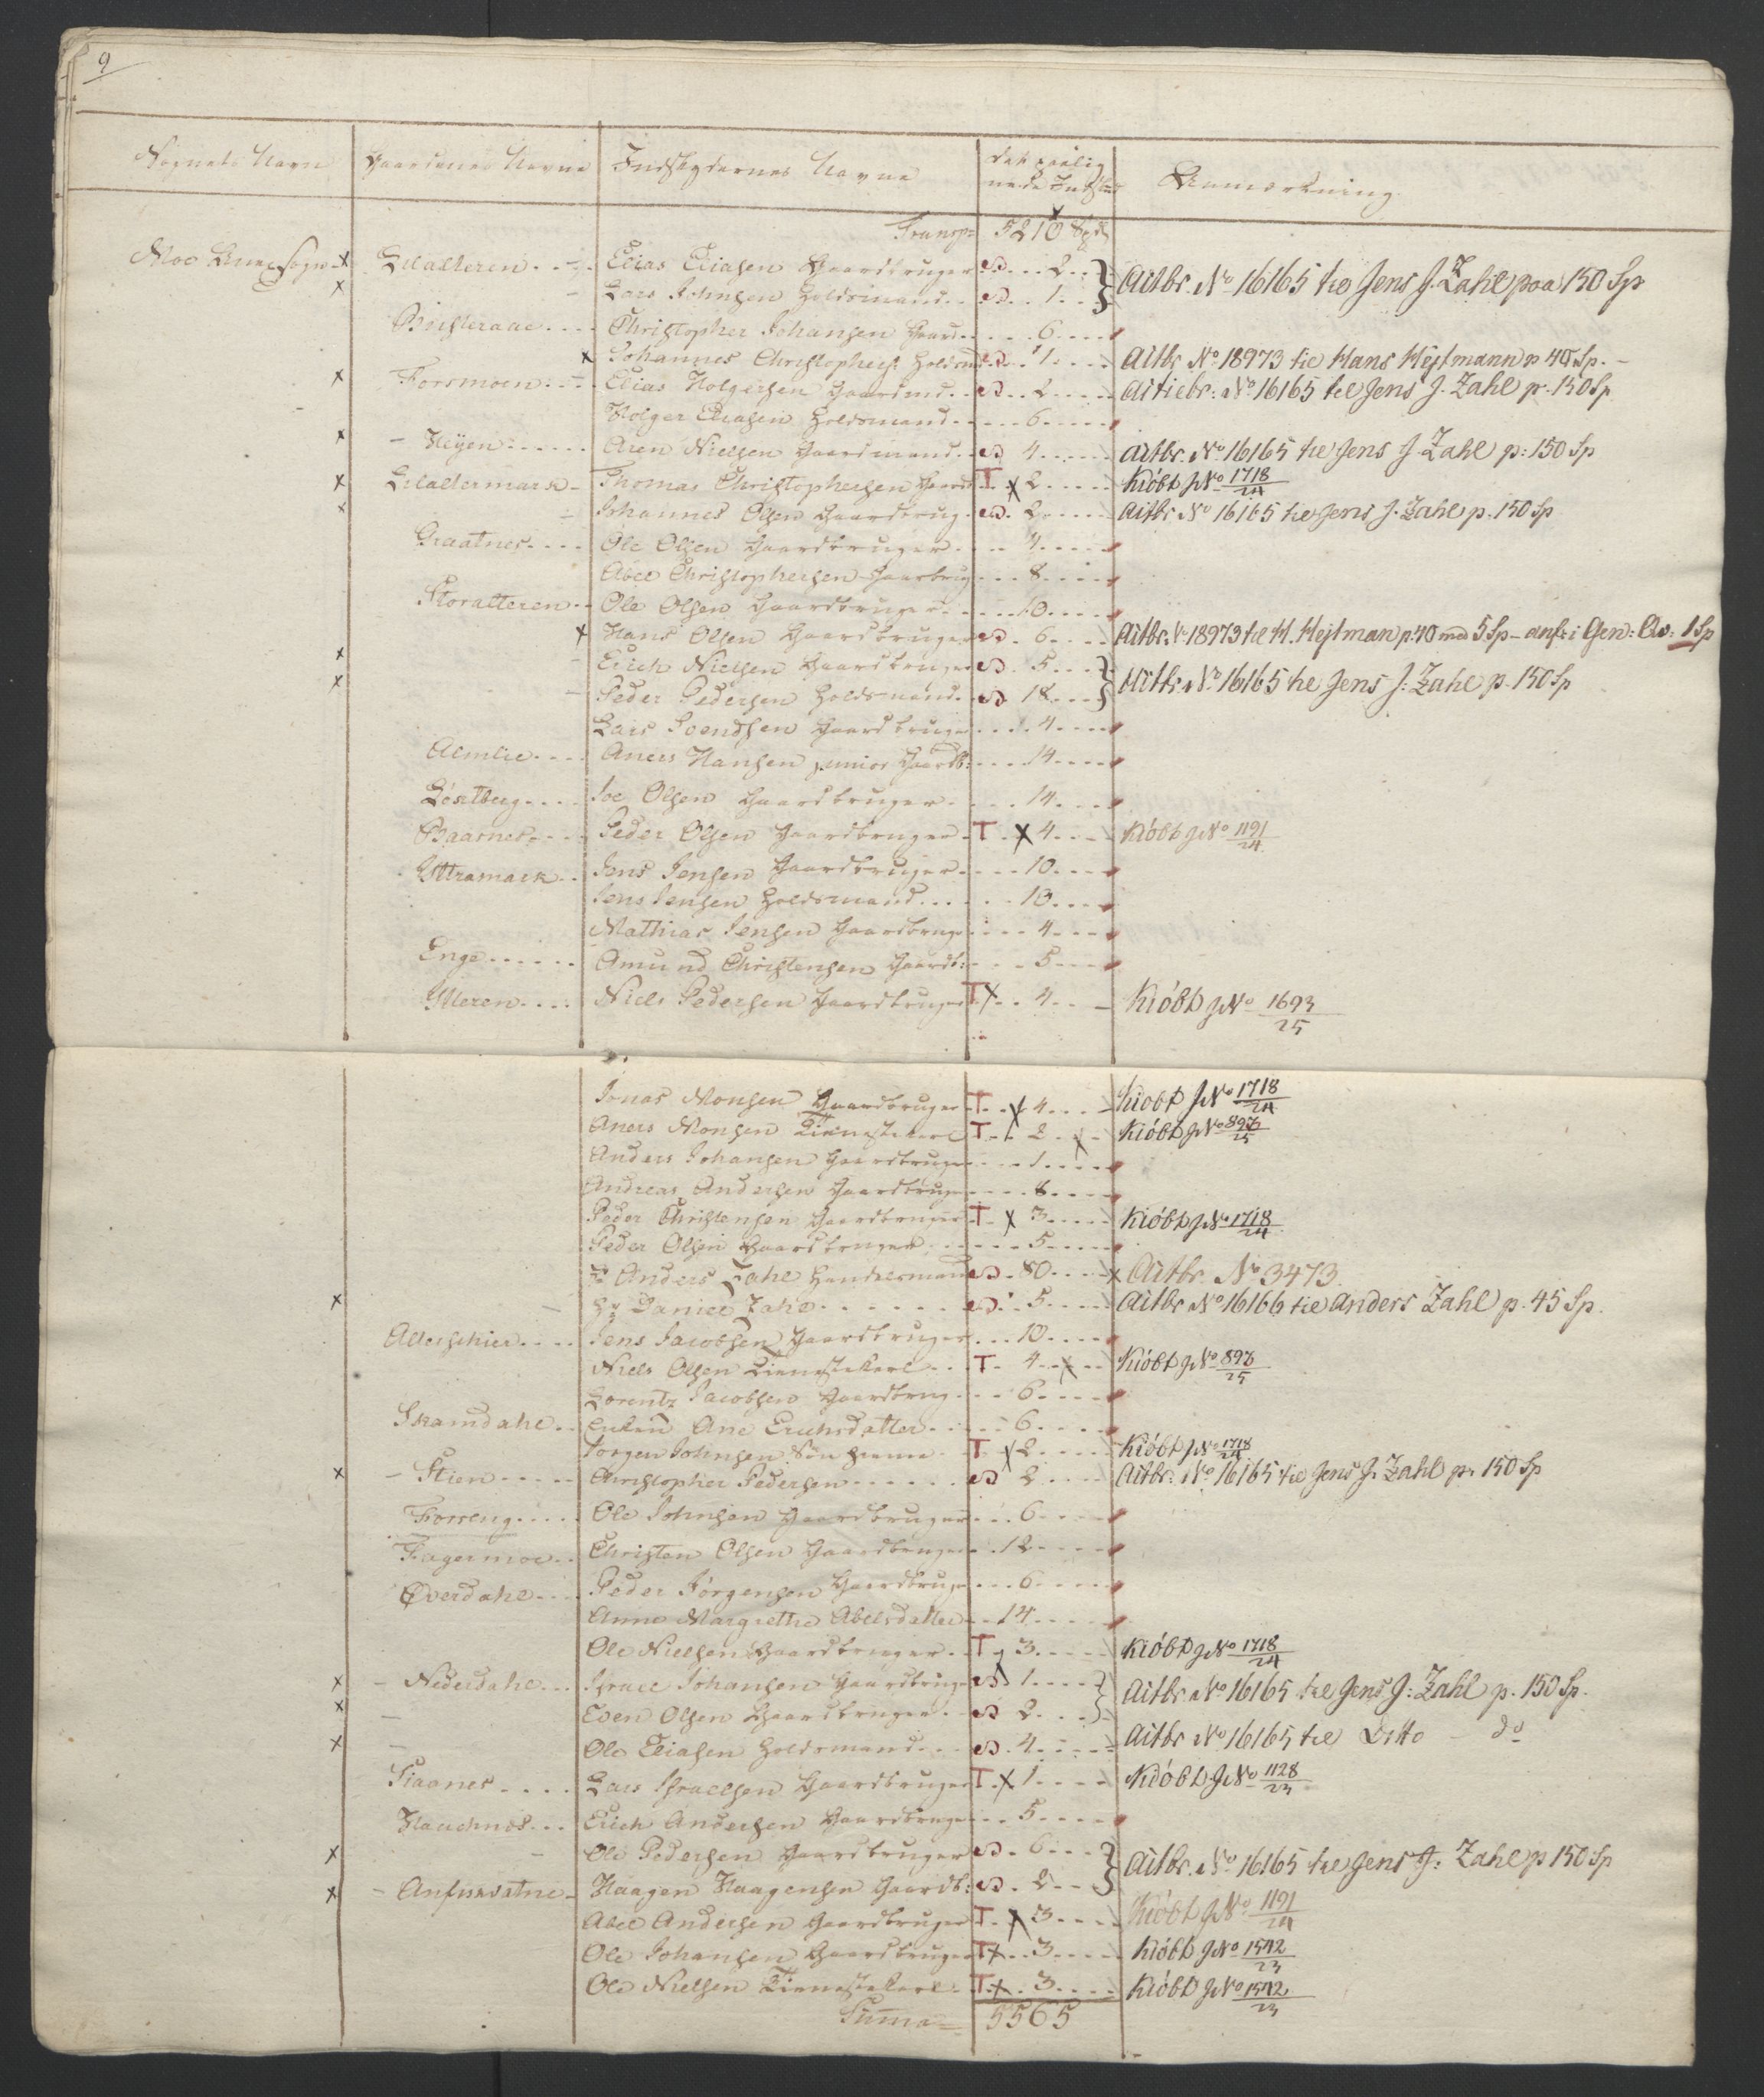 9
Sognets Navn Gaardenes Navne Indsbydernes Navne det paalig nede Indsk Anmærkning
Transp 5210 Spd
Moe Annex Sogn x Lilalteren Elias Eliasen Gaardbruger 2 Actbr. No 16165 til Jens J. Zahl paa 150 Sp
x Lars Johnsen Holdsmand 1
Christopher Johansen Gaard 6
x Johannes Christophers Holdsm 1 Actbr No 18973 til Hans Hejtmann p 40 Sp.
x Forsmoen Elias Holgersen Gaardmd 2 Actiebr: No 16165 til Jens J. Zahl p. 150 Sp
Holger Eliasen Holdsmand 6
x Heÿen Aren Nielsen Gaardmand 4 Actbr. No 16165 til Jens J. Zahl p: 150 Sp
x Lilaltermark Thomas Christophersen Gaard T x 2 Kiöbt JNo 1718/24
x Johannes Olsen Gaardbrug 2 Actbr No 16165 til Jens J. Zahl p. 150 Sp
Graatnes Ole Olsen Gaardbruger 4
Abel Christophersen Gaarbrug 8
Storalteren Ole Olsen Gaardbruger 10
x Hans Olsen Gaardbruger 6 Actbr. No 18973 til H. Hejtman p. 40 med 5 Sp - anf: i Gen: 1 Sp
x Erich Nielsen Gaardbruger 5 Actbr. No 16165 til Jens J. Zahl p. 150 Sp
x Peder Pedersen Holdsmand 18
Lars Svendsen Gaardbruger 4
Almlie Aners Hansen junior Gaardb: 14
Löset­berg Joe Olsen Gaardbruger 14
Baasnes Peder Olsen Gaardbruger T x 4 Kiöbt JNo 1191/24
Ÿttramark Jens Jensen Gaardbruger 10
Jens Jensen Holdsmand 10
Mathias Jensen Gaardbruge 4
Enge Amund Christensen Gaardb: 5
Ÿtteren Niels Pedersen Gaardbruger T x 4 Kiöbt JNo 1693/25
Jonas Monsen Gaardbruger T x 4 Kiöbt JNo 1718/24
Aners Monsen Tienestekarl T 2 x Kiöbt JNo 893/25
Anders Johansen Gaardbruge 1
Andreas Andersen Gaardbruge 8
Peder Christensen Gaardbruger T x 3 Kiöbt JNo 1718/24
Peder Olsen Gaardbruger 5
Hr Anders Zahl Handelsmand 80 x Actbr. No 3473
x Hr Daniel Zahl 5 Actbr No 16166 til Anders Zahl p. 45 Sp.
Alterskier Jens Jacobsen Gaardbruger 10
Niels Olsen Tienestekarl T 4 x Kiöbt JNo 893/25
Lorentz Jacobsen Gaardbrug 6
Skamdahl Enken Ane Erichsdatter 6
Jorgen Johnsen Sön hienne T x 2 Kiöbt JNo 1718/24
x Stien Christopher Pedersen 2 Actbr. No 16165 til Jens J. Zahl p. 150 Sp
Forseng Ole Johnsen Gaardbruger 6
Fagermoe Christen Olsen Gaardbruger 12
Øverdahl Peder Jörgensen Gaardbruge 6
Anne Margrethe Abelsdatter 14
Ole Nielsen Gaardbruger T 3 Kiöbt JNo 1718/24
x Nederdahl Israel Johansen Gaardbruge 1 Actbr. No 16165 til Jens J: Zahl p. 150 Sp.
x Even Olsen Gaardbruger 2
x Ole Eliasen Holdsmand 4 Actbr No 16165 til Ditto do
Siaanes Lars Israelsen Gaardbruger T x 1 Kiöbt JNo 1128/23
Hauchnes Erich Andersen Gaardbruge 5
x Ole Pedersen Gaardbruger 6 Actbr. No 16165 til Jens J: Zahl p 150 Sp
x Anfindsatne Haagen Haagensen Gaardb: 2
Abel Andersen Gaardbruger T x 3 Kiöbt JNo 1191/24
Ole Johansen Gaardbruger T x 3 Kiöbt JNo 1542/23
Ole Nielsen Tienestekarl T x 3 Kiöbt JNo 1542/23
Suma 5565